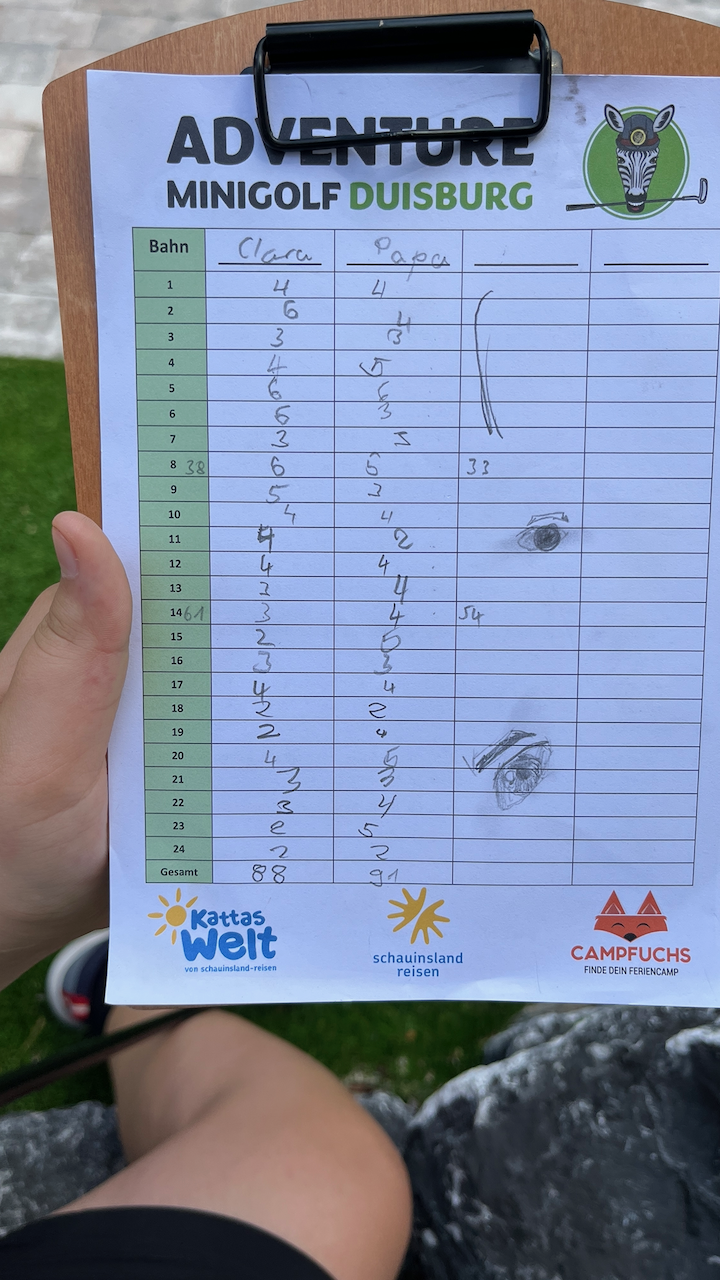 ADVENTURE
MINIGOLF DUISBURG
Bahn Clara Papa
1 4 4
2 6 4
3 3 3
4 4 5
5 6 6
6 6 3
7 3 3
8 38 6 5 33
9 5 3
10 4 4
11 4 2
12 4 4
13 3 4
14 61 3 4 54
15 2 5
16 3 3
17 4 4
18 2 2
19 2 4
20 4 5
21 3 3
22 3 4
23 2 5
24 2 2
Gesamt 88 91
Kattas
Welt
von schauinsland-reisen
schauinsland
reisen
CAMPFUCHS
FINDE DEIN FERIENCAMP